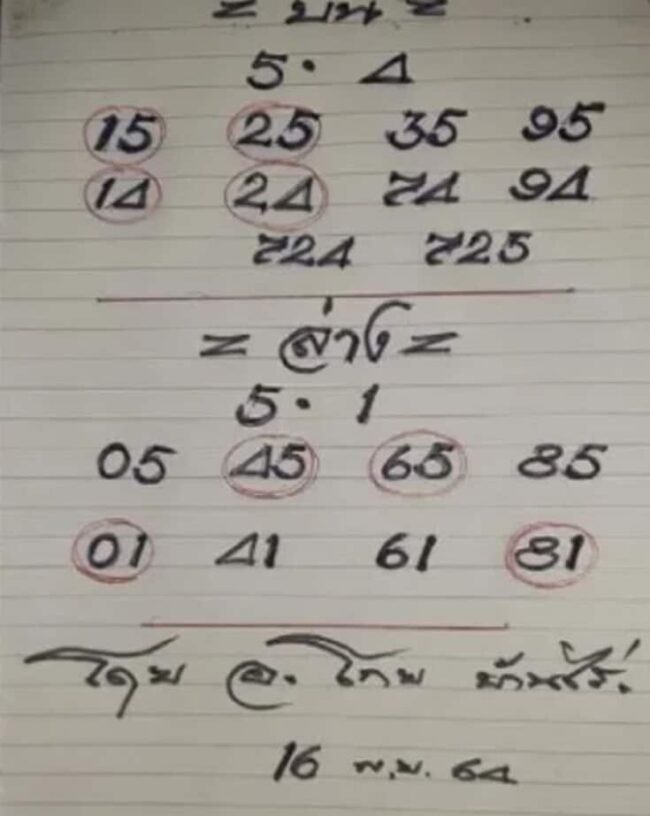 = บน =
5 · 4
15 25 35 95
14 24 74 94
724 725
= ล่าง =
5 · 1
05 45 65 85
01 41 61 81
โดย อ. โทบ บ้านไร่.
16 พ.ย. 64